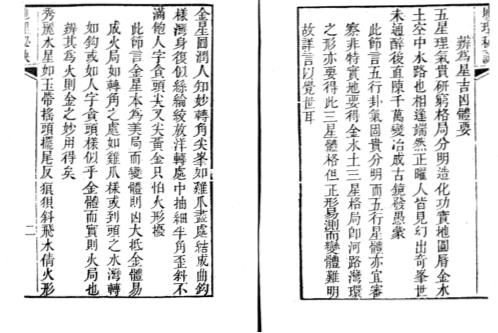 辨為星吉凶體要
五星理氣貴研窮格局分明造化功實地圓唇金水
土空中水路也相逢端然正曜人皆見幻出奇峯世
未通醉後直陳千萬變冶成古鏡發愚蒙
此節言五行卦氣固貴分明而五行星體亦宜審
察非特實地要得金水土三星格局卽如河路灣環
之形亦要得此三星體格但正形易測而變體難明
故詳言以覺世耳
金星圓潤人知妙轉角尖峯如雞爪盡處結成曲鈎
樣灣身復似絲綸絞放洋轉處中抽細牛角歪斜不
滿飽人字貪頭尖又尖黃金只怕火形擾
此節言金星本為美局而變體則凶大抵金體易
成火局如轉角之處如雞爪樣或到頭之水灣轉
如鈎或如人字貪頭樣似乎金體而實則火局也
辨其為火則金之妙用得矣
秀麗水星如玉帶搖頭擺尾反狼狽斜飛水倩火形
二